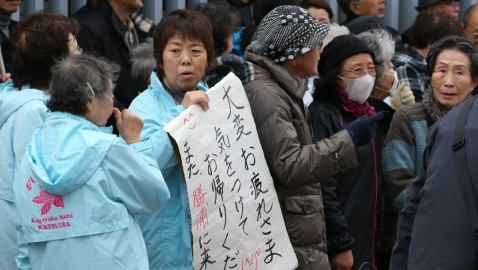 大変お疲れさま
気をつけて
お帰りくだ
また、勝浦に来
KATSUURA